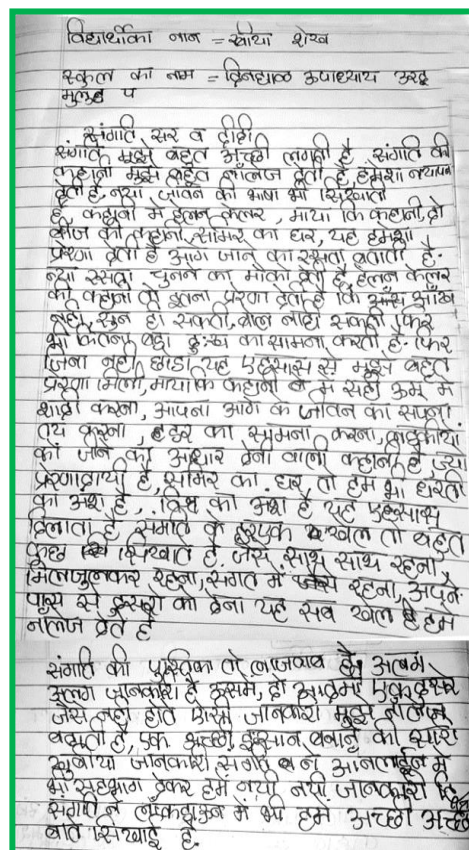 विद्यार्थीका नाम = रुबीया शेख
स्कुल का नाम = दिनदयाळ उपाध्याय उरदु
मुलुंड प
संगति, सर व दीदी
संगति मुझे बहुत अच्छी लगती है संगति की
कहानी मुझे बहुत नॉलेज देती है, हमेशा नयापन
देती है. नया जीवन की भाषा भी सिखाती
है. कहानी में हेलन केलर, माया कि कहानी, दो
बीज की कहानी, सामेर का घर, यह हमेशा
प्रेरणा देती है आगे जाने का रस्ता बताती है.
नया रस्ता चुनने का मौका देती है, हेलन केलर
की कहानी तो इतना प्रेरणा देती है कि आँख
नही, सुन ही सकती, बोल नाही सकती फिर
भी कितना बडा दुःख का सामना करती है. फिर
जिना नही छोडा यह एहसास से मुझे बहुत
प्रेरणा मिली, माया कि कहानी में सही उम्र में
शादी करना, आपना आगे के जीवन का सपना
तय करना, डर का सामना करना, लडकीयों
को जीने का आधार देनी वाली कहानी है ज्यो
प्रेरणादायी है, सामेर का घर, तो हम भी धरती
का अंश है, विश्व का अंश है यह एहसास
दिलाता है संगति के हरएक खेल तो बहुत
कुछ सिखाते है. जैसे साथ साथ रहना
मिलजुलकर रहना, संगत में कैसे रहना, अपने
पास से दुसरो को देना यह सब खेल है हमे
नॉलेज देते है
संगति की पुस्तिका तो लाजवाब है. अलग
अलग जानकारी है उसमे, दो आदमी एक दुसरे
जैसे नही होते ऐसी जानकारी मुझे नॉलेज
बढाती है, एक अच्छी इंसान बनाने की सारी
खुबीया जानकारी संगति ने आनलाईन में
भी सहभाग देकर हमे नयी नयी जानकारी दि
संगति ने लॉकडाऊन में भी हमे अच्छी अच्छी
बाते सिखाई है.